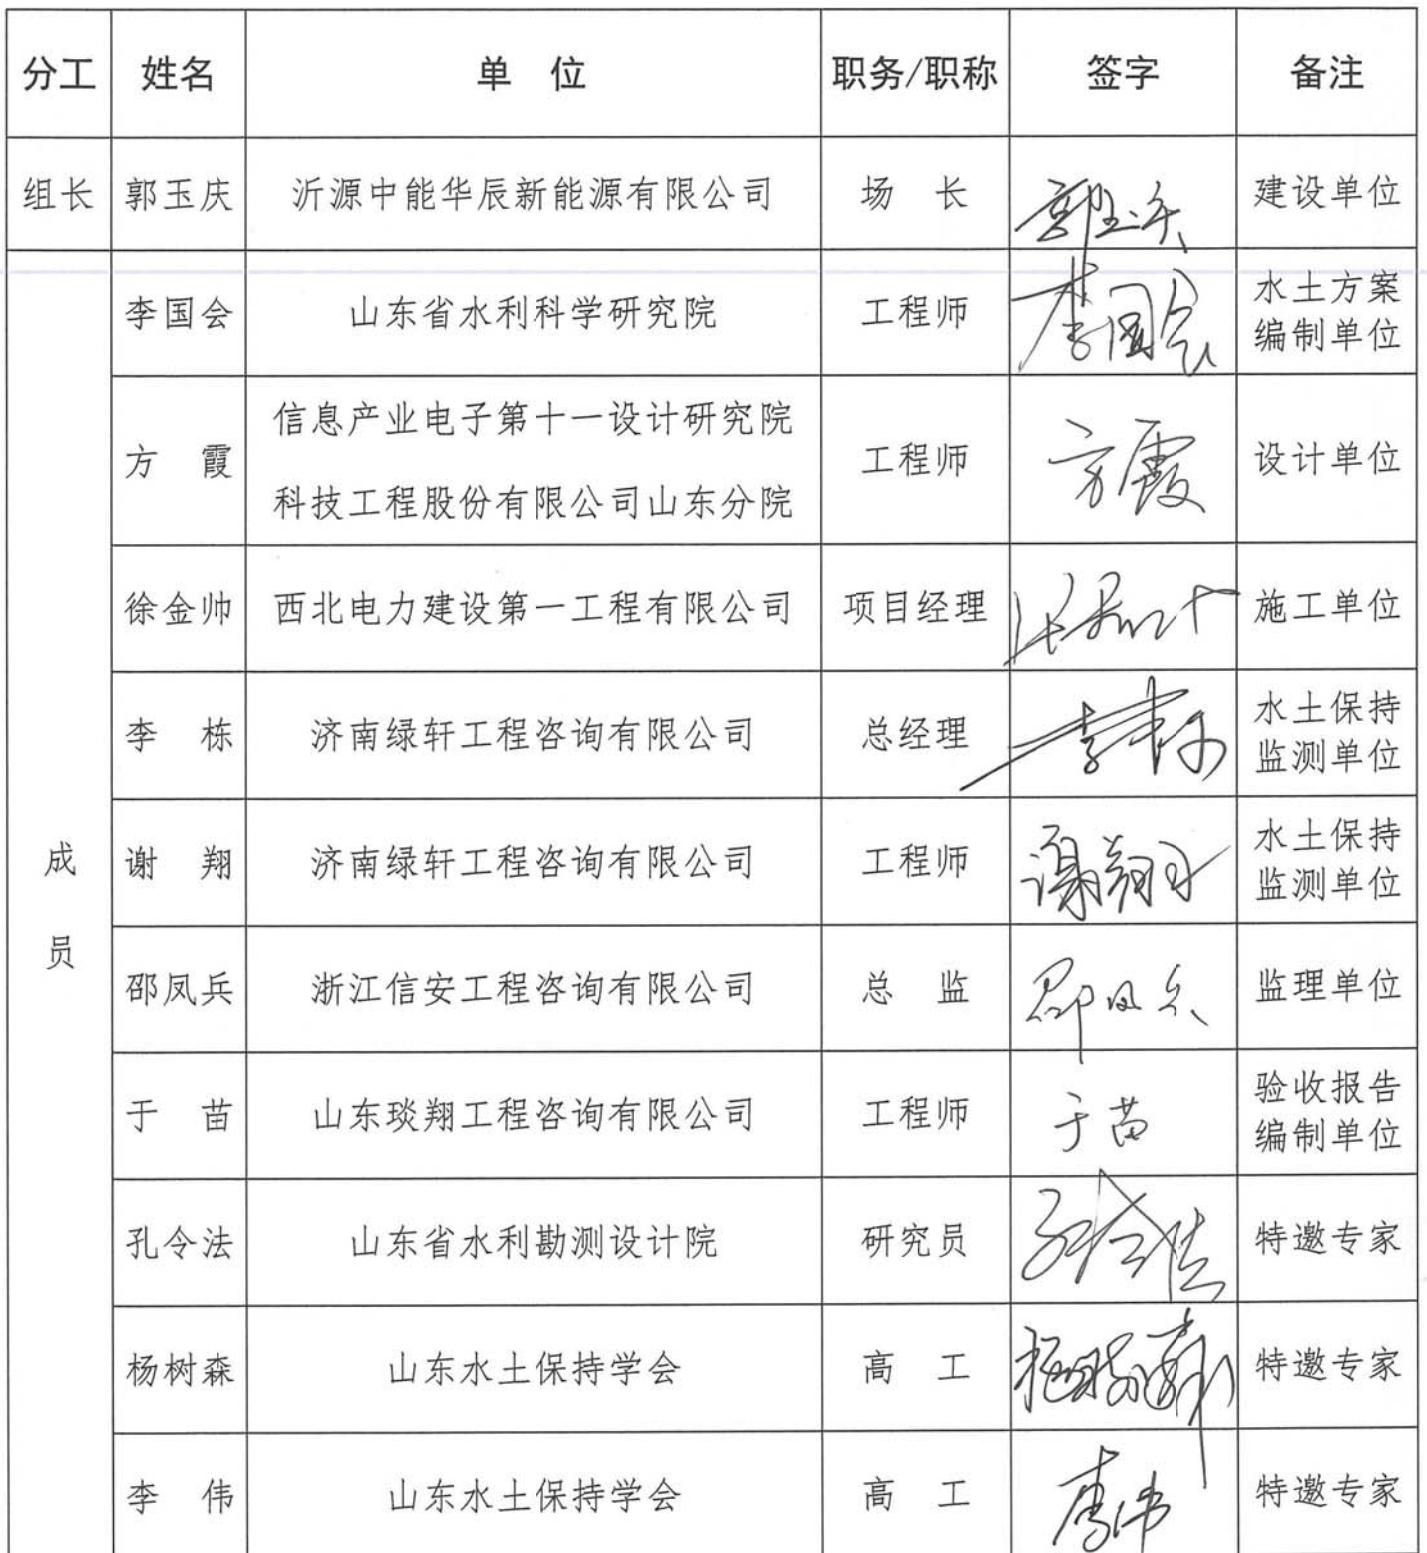 分工 姓名 单 位 职务/职称 签字 备注
组长 郭玉庆 沂源中能华辰新能源有限公司 场 长 郭玉庆 建设单位
李国会 山东省水利科学研究院 工程师 李国会 水土方案
编制单位
方 霞 信息产业电子第十一设计研究院
科技工程股份有限公司山东分院 工程师 方霞 设计单位
徐金帅 西北电力建设第一工程有限公司 项目经理 徐金帅 施工单位
李 栋 济南绿轩工程咨询有限公司 总经理 李栋 水土保持
监测单位
成
员
谢 翔 济南绿轩工程咨询有限公司 工程师 谢翔 水土保持
监测单位
邵凤兵 浙江信安工程咨询有限公司 总 监 邵凤兵 监理单位
于 苗 山东琰翔工程咨询有限公司 工程师 于苗 验收报告
编制单位
孔令法 山东省水利勘测设计院 研究员 孔令法 特邀专家
杨树森 山东水土保持学会 高 工 杨树森 特邀专家
李 伟 山东水土保持学会 高 工 李伟 特邀专家